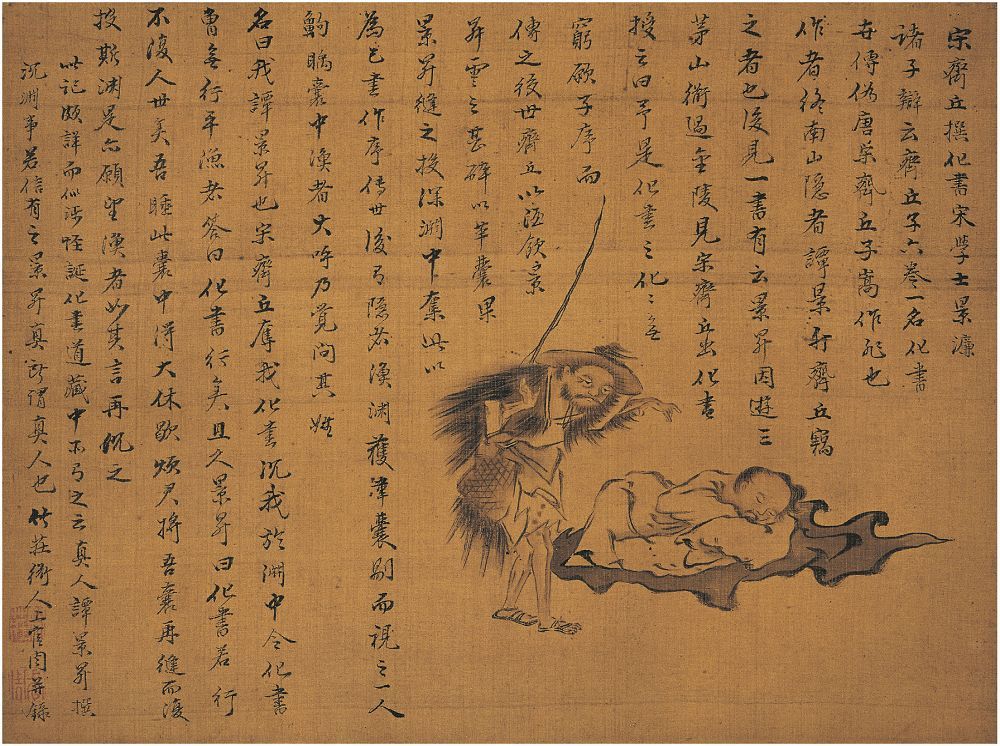 宋齊丘撰化書宋學士景濂
諸子辯云齊丘子六卷一名化書
世傳偽唐宋齊丘子嵩作非也
作者終南山隱者譚景昇齊丘竊
之者也後見一書有云景昇因遊三
茅山衜過金陵見宋齊丘出化書
授云曰予是化書之化〻無
窮願子序而
傳之後世齊丘以酒飲景
昇之甚醉以革囊
景昇縫之投深淵中奪此以
為己書作序傳世後有隱者漁淵獲革囊剔而視之一人
齁睡囊中漁者大呼乃覺問其姓
名曰我譚景昇也宋齊丘奪我化書沉我於淵中今化書
曾無行乎漁者答曰化書行矣且久景昇曰化書若行
不復人世矣吾睡此囊中得大休歇煩君將吾囊再縫而復
投斯淵是亦願望漁者如其言再沉之
此記頗詳而似涉怪誕化書道藏中亦有之云真人譚景昇撰
沉淵事若信有之景昇真所謂真人也 竹莊衜人上官周并錄